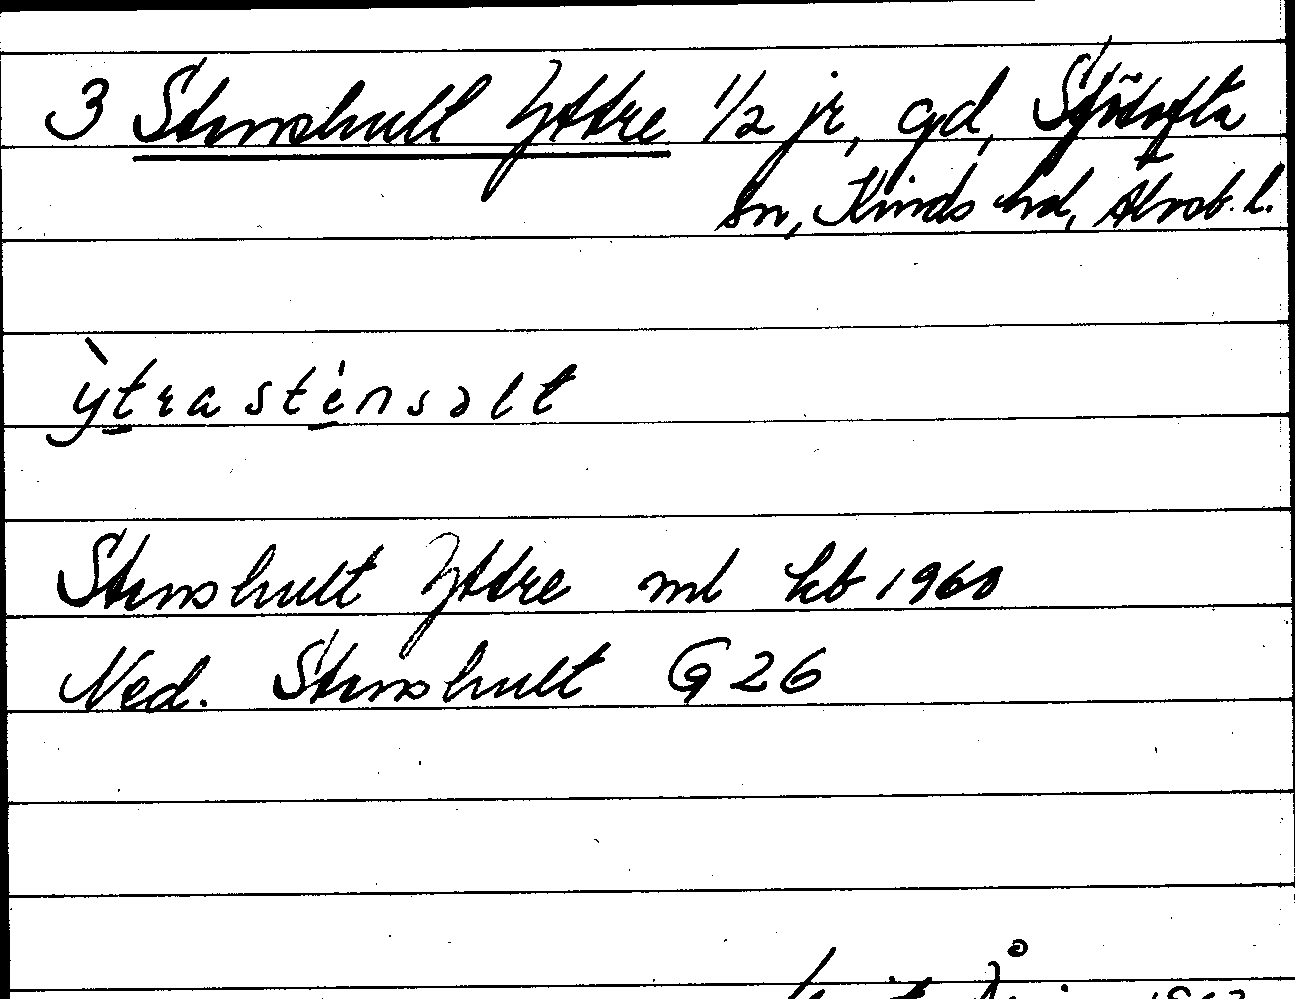 3 Stenshult Yttre 1/2 jr, gd, Sjötofta
sn, Kinds hd, Älvsb. l.
ỳtra sténsəlt
Stenshult Yttre ml kb 1960
Ned. Stenshult G 26